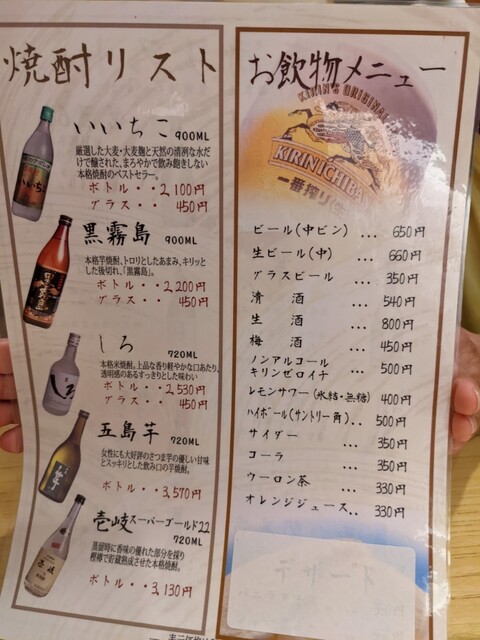 焼酎リスト
いいちこ 900ML
厳選した大麦・大麦麹と天然の清冽な水だ
けで醸された、まろやかで飲み飽きしない
本格焼酎のベストセラー。
ボトル・・2,100円
グラス・・ 450円
黒霧島 900ML
本格芋焼酎、トロリとしたあまみ、キリッと
した後切れ、「黒霧島」。
ボトル・・2,200円
グラス・・ 450円
しろ 720ML
本格米焼酎。上品な香り軽やかな口あたり、
透明感のあるすっきりとした味わい
ボトル・・2,530円
グラス・・ 450円
五島芋 720ML
女性にも大好評のさつま芋の優しい甘味
とスッキリとした飲み口の芋焼酎。
ボトル・・3,570円
壱岐スーパーゴールド22
720ML
蒸留時に香味の優れた部分を採り
樫樽で貯蔵熟成させた本格焼酎。
ボトル・・3,130円
お飲物メニュー
KIRIN'S ORIGINAL
KIRIN ICHIBAN
一番搾り
ビール(中ビン) ... 650円
生ビール(中) ... 660円
グラスビール ... 350円
清 酒 ... 540円
生 酒 ... 800円
梅 酒 ... 450円
ノンアルコール
キリンゼロイチ ... 500円
レモンサワー(氷結・無糖) 400円
ハイボール(サントリー角).. 500円
サイダー ... 350円
コーラ ... 350円
ウーロン茶 ... 330円
オレンジジュース.. 330円
デザート